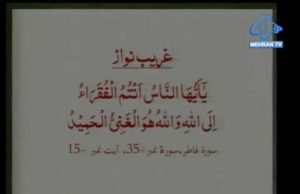 MEHRAN TV
غریب نواز
يٰۤاَيُّهَا النَّاسُ اَنْتُمُ الْفُقَرَآءُ
اِلَى اللّٰهِ وَاللّٰهُ هُوَ الْغَنِيُّ الْحَمِيْدُ
سورۃ فاطر، سورۃ نمبر –35، آیت نمبر –15